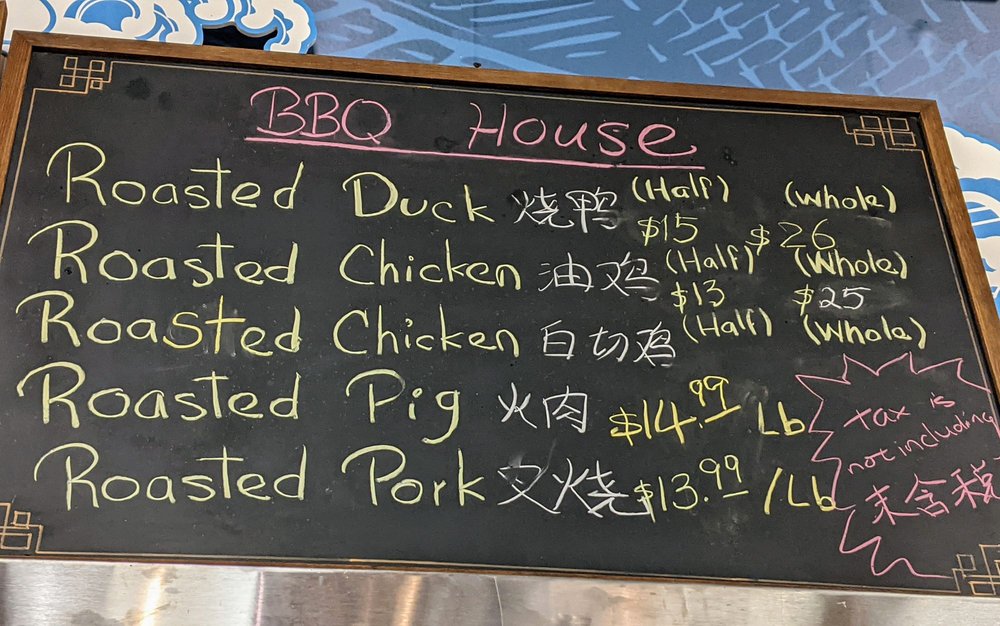 BBQ House
Roasted Duck 烧鸭 (Half) (whole)
$15 $26
Roasted Chicken 油鸡 (Half) (Whole)
$13 $25
Roasted Chicken 白切鸡 (Half) (Whole)
Roasted Pig 火肉 $14.99 Lb
Roasted Pork 叉烧 $13.99 /Lb
tax is
not including
未含税